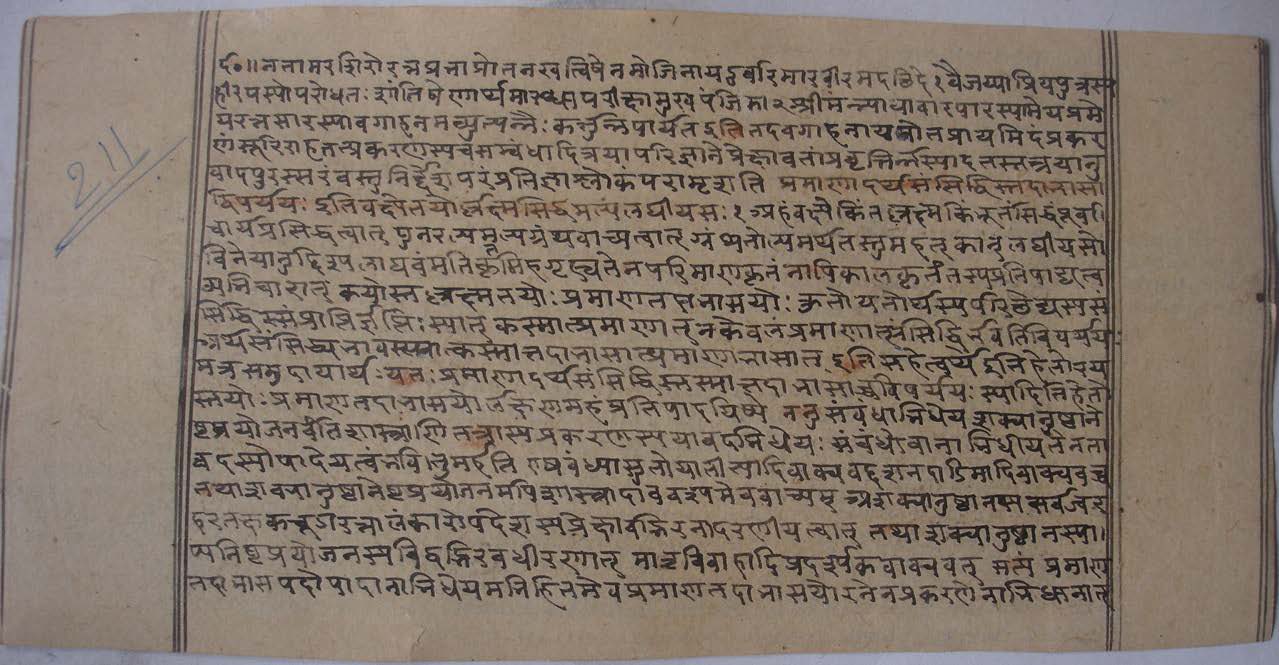 र्द०॥ नतामरशिरोरत्नप्रभाप्रोतनखत्विषे नमो जिनाय दुर्वारमारवीरमदछिदे १ वैजय्याप्रियपुत्रस्य
हीरपस्योपरोधतः शांतिषेणार्थमारब्धा परीक्षामुखपंजिका २ श्रीमन्न्यायावारपारस्यामेयप्रमे
यरत्नसारस्यावगाहनमव्युत्पन्नैः कर्त्तुं न पार्यत इति तदवगाहनाय पोतप्रायमिदं प्रकर
णं सूरिराह तत्प्रकरणस्य च सम्बंधादित्रयापरिज्ञाने प्रेक्षावतां प्रवृत्तिर्न स्यादतस्तत्त्रयानु
वादपुरस्सरं वस्तुनिर्द्देशपरं प्रतिज्ञाश्लोकं परामृशति प्रमाणादर्थसंसिद्धिस्तदाभासा
द्विपर्ययः इति वक्ष्ये तयोर्लक्ष्म सिद्धमल्पं लघीयसः १ अहं वक्ष्ये किं तल्लक्ष्म किंभूतं सिद्धं पूर्वा
चार्यप्रसिद्धत्वात् पुनरल्पमल्पग्रंथवाच्यत्वात् ग्रंथतोल्पमर्थतस्तु महत् कान् लघीयसो
विनेयानुद्दिश्य लाघवं मतिकृतमिह गृह्यते न परिमाणकृतं नापि कालकृतं तस्य प्रतिपाद्यत्व
व्यभिचारात् कयोस्तल्लक्ष्म तयोः प्रमाणतदाभासयोः कुतो यतोर्थस्य परिछेद्यस्य स
सिद्धिः संप्राप्तिर्ज्ञप्तिः स्यात् कस्मात्प्रमाणात् न केवलं प्रमाणात्संसिद्धिर्भवति विपर्यय
अर्थसंसिद्ध्यभावस्स्यात् कस्मात्तदाभासात्प्रमाणाभासात् इति सहेत्वर्थ इति हेतोरय
मत्र समुदायार्थः यतः प्रमाणादर्थसंसिद्धिस्तस्मात्तदाभासाच्च विपर्ययः स्यादिति हेतो
स्तयोः प्रमाणतदाभासयोर्लक्षणमहं प्रतिपादयिष्ये ननु संबंधाभिधेयशक्यानुष्ठाने
ष्टप्रयोजनवंति शास्त्राणि तत्रास्य प्रकरणस्य यावदभिधेयः संबंधो वा नाभिधीयते न ता
वदस्योपादेयत्वं भवितुमर्हति एष बंध्यासुतो यातीत्यादिवाक्यवद्दशदाडिमादिवाक्यवच्च
तथा शक्यानुष्ठानेष्टप्रयोजनमपि शास्त्रादाववश्यमेव वाच्यम् अशक्यानुष्ठानस्य सर्वज्वर
हरतक्षकचूडारत्नालंकारोपदेशस्य प्रेक्षावद्भिरनादरणीयत्वात् तथा शक्यानुष्ठानस्या
प्यनिष्टप्रयोजनस्य विद्वद्भिरवधीरणात् मातृविवाहादिप्रदर्शकवाक्यवत् सत्यं प्रमाण
तदाभासपदोपादानाभिधेयमभिहितमेव प्रमाणतदाभासयोरनेन प्रकरणेनाभिधानात्
211